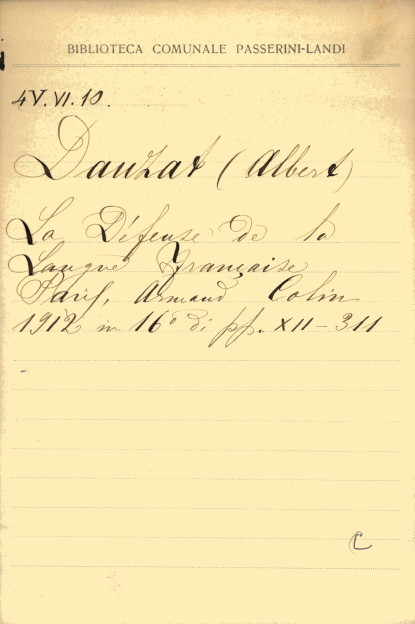 BIBLIOTECA COMUNALE PASSERINI-LANDI
4V.VI.10.
Dauzat (Albert)
La Défense de la
Langue Française
Paris, Armand Colin
1912 in 16° di pp. XII-311
C